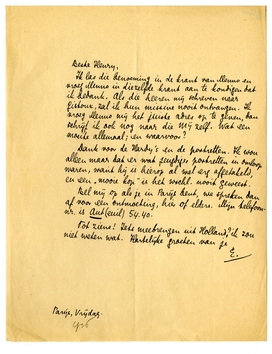 Beste Henny,
Ik las die benoeming in de krant van Menno en
vroeg Menno in diezelfde krant aan te kondigen dat
ik bedank. Als die heeren mij schreven naar
Gistoux, zal ik hun missive nooit ontvangen. Ik
vroeg Menno mij het juiste adres op te geven, dan
schrijf ik ook nog naar die Mij zelf. Wat een
moois allemaal; en waarvoor?
Dank voor de Hardy's en de postzegels. Ik
alleen maar dat er wat
waren, want hij is heerop al wel erg afgetakeld,
en een „mooie kop” is het wschl. nooit geweest.
Bel mij op als je in Parijs bent, we spreken dan
af voor een ontmoeting, hier of elders. Mijn telefoon-
nr. is Aut(euil) 54.40.
Tot ziens! Iets meebrengen uit Holland, ik zou
niet weten wat. Hartelijke groeten van je
E.
Parijs, Vrijdag.
1936